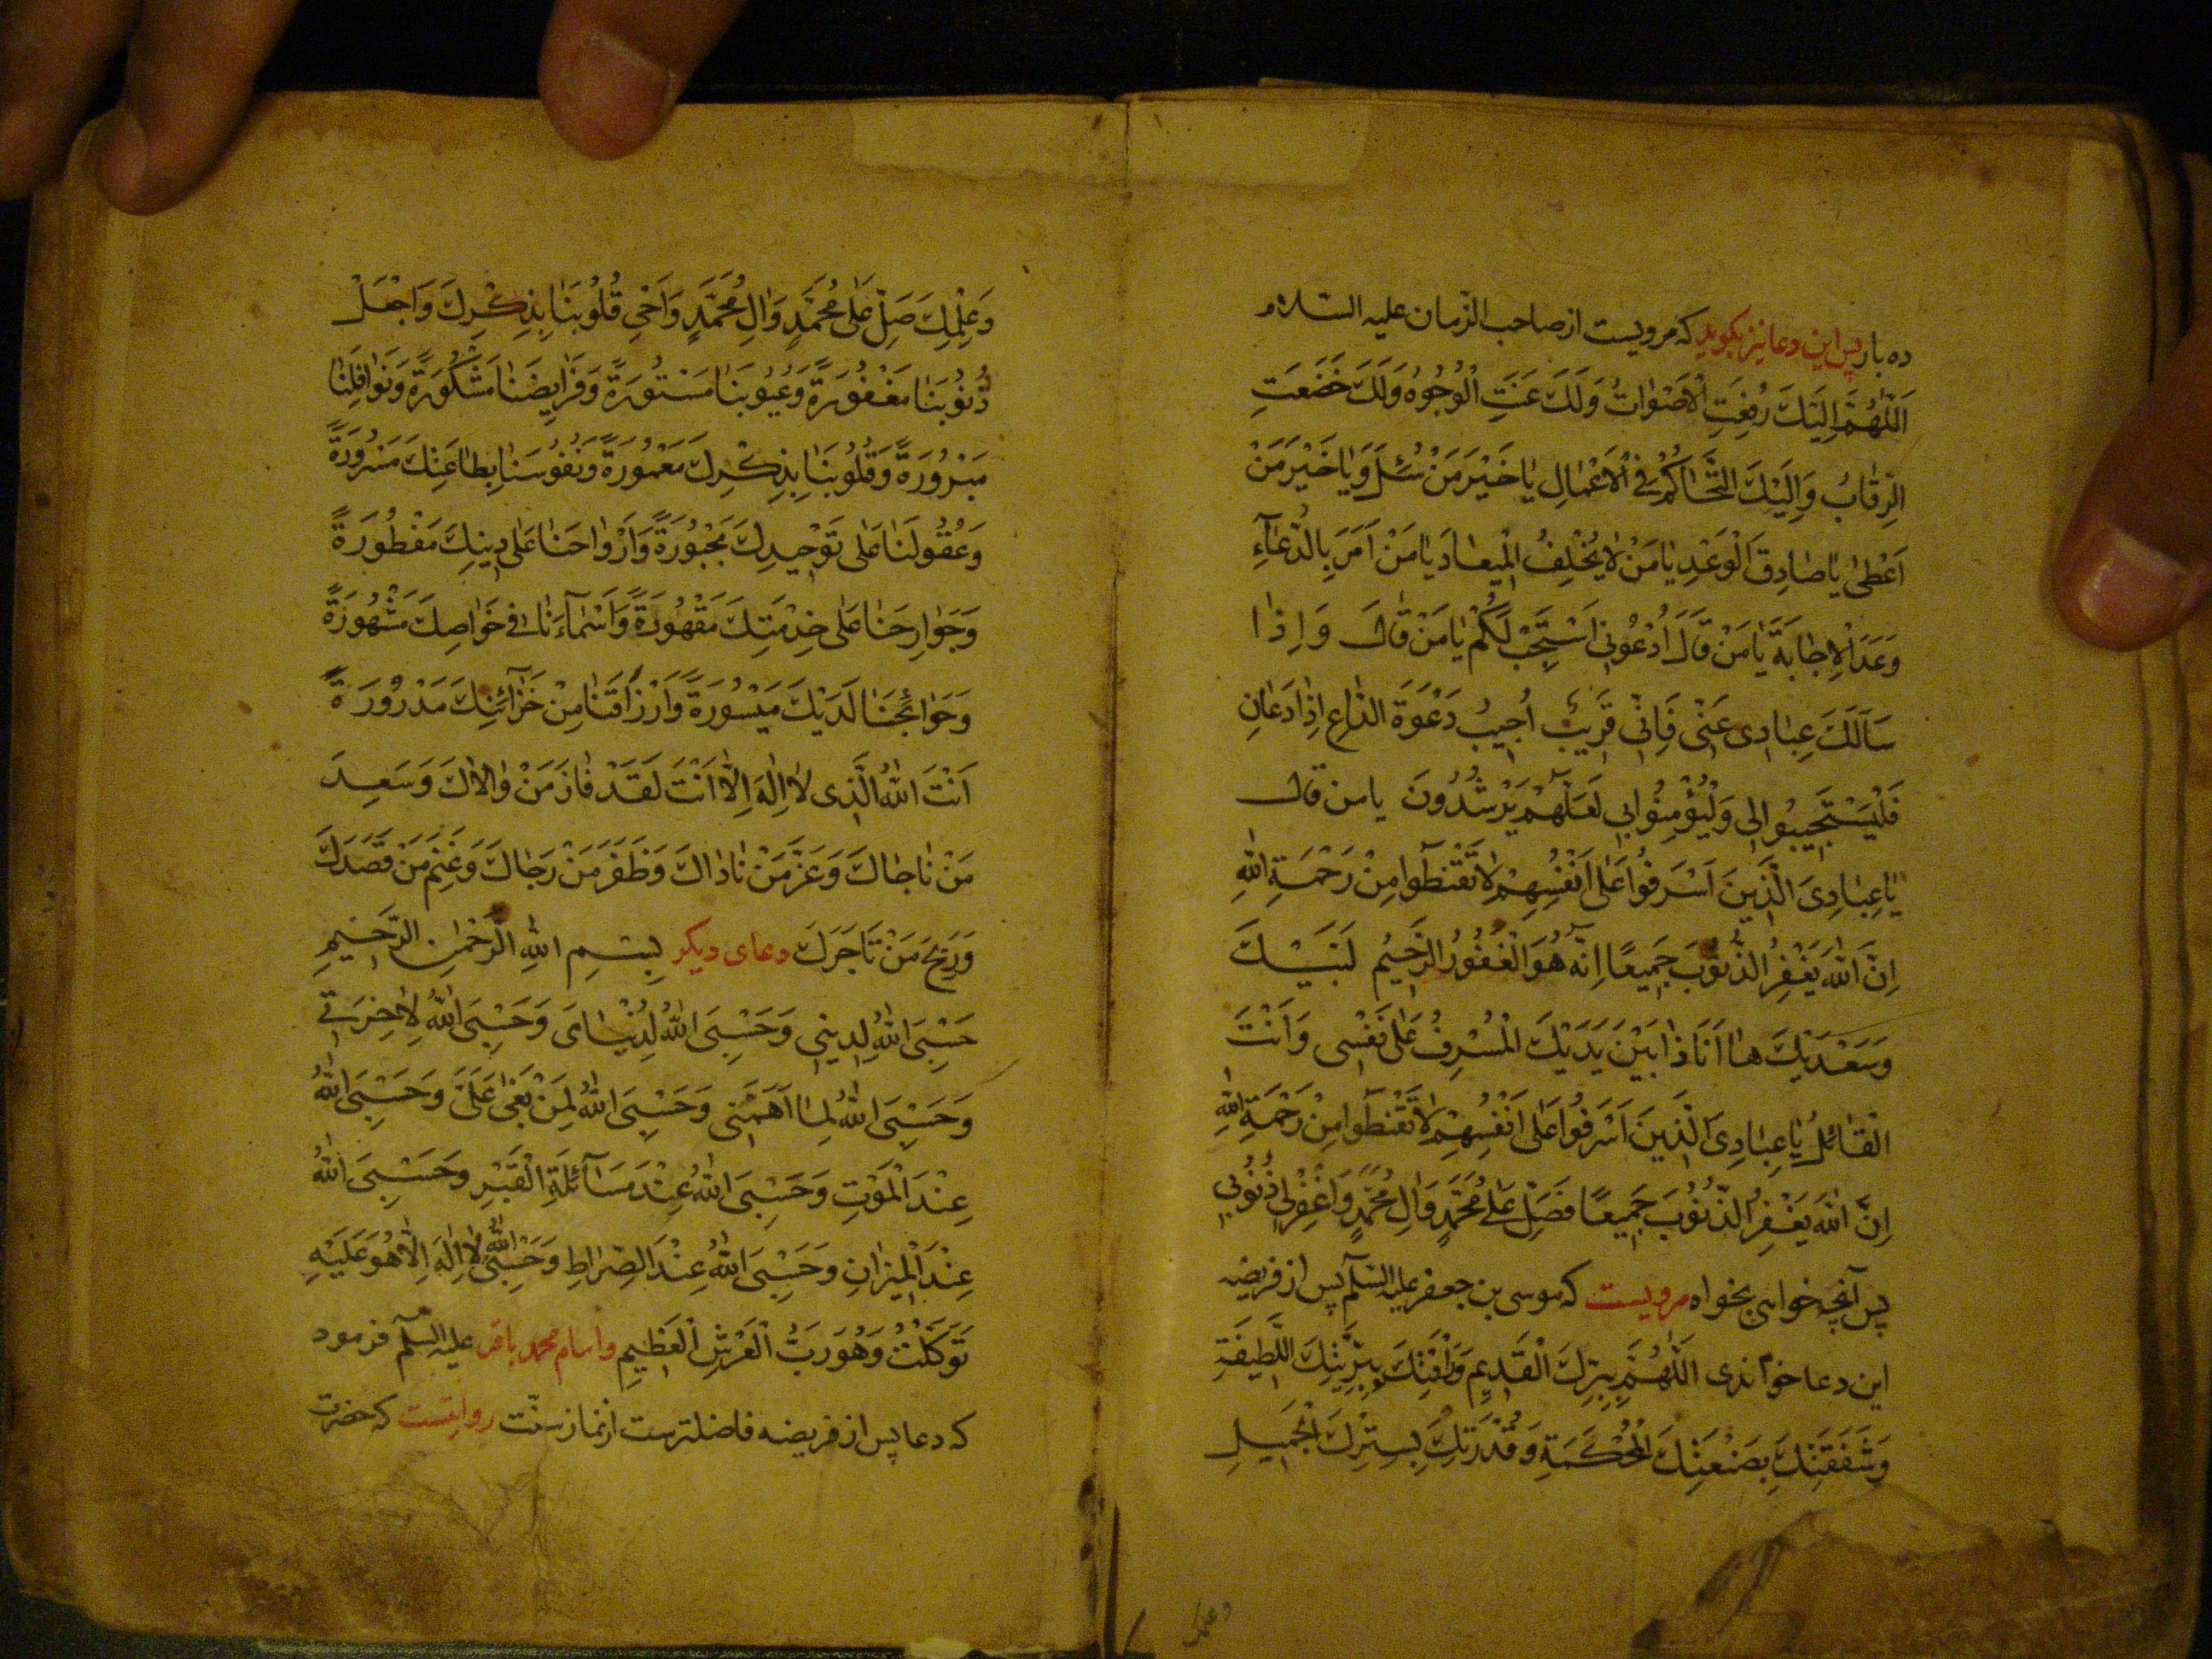 ده بار پس این دعا نیز بگوید که مرویست از صاحب الزمان علیه السلام
اَللّٰهُمَّ اِلَیْكَ رُفِعَتِ الْاَصْوَاتُ وَلَكَ عَنَتِ الْوُجُوهُ وَلَكَ خَضَعَتِ
الرِّقَابُ وَاِلَیْكَ التَّحَاكُمُ فِی الْاَعْمَالِ یَا خَیْرَ مَنْ سُئِلَ وَیَا خَیْرَ مَنْ
اَعْطٰی یَا صَادِقَ الْوَعْدِ یَا مَنْ لَا یُخْلِفُ الْمِیعَادَ یَا مَنْ اَمَرَ بِالدُّعَآءِ
وَعَدَ الْاِجَابَةَ یَا مَنْ قَالَ اُدْعُونِی اَسْتَجِبْ لَكُمْ یَا مَنْ قَالَ وَاِذَا
سَاَلَكَ عِبَادِی عَنِّی فَاِنِّی قَرِیبٌ اُجِیبُ دَعْوَةَ الدَّاعِ اِذَا دَعَانِ
فَلْیَسْتَجِیبُوا لِی وَلْیُؤْمِنُوا بِی لَعَلَّهُمْ یَرْشُدُونَ یا من قال
یَا عِبَادِیَ الَّذِینَ اَسْرَفُوا عَلٰی اَنْفُسِهِمْ لَا تَقْنَطُوا مِنْ رَحْمَةِ اللّٰهِ
اِنَّ اللّٰهَ یَغْفِرُ الذُّنُوبَ جَمِیعًا اِنَّهُ هُوَ الْغَفُورُ الرَّحِیمُ لَبَّیْكَ
وَسَعْدَیْكَ هَا اَنَا ذَا بَیْنَ یَدَیْكَ الْمُسْرِفُ عَلٰی نَفْسِی وَاَنْتَ
الْقَائِلُ یَا عِبَادِیَ الَّذِینَ اَسْرَفُوا عَلٰی اَنْفُسِهِمْ لَا تَقْنَطُوا مِنْ رَحْمَةِ اللّٰهِ
اِنَّ اللّٰهَ یَغْفِرُ الذُّنُوبَ جَمِیعًا فَصَلِّ عَلٰی مُحَمَّدٍ وَاٰلِ مُحَمَّدٍ وَاغْفِرْ لِی ذُنُوبِی
پس آنچه خواهی بخواه مرویست که موسی بن جعفر علیه السلم پس از فریضه
این دعا خواندی اَللّٰهُمَّ بِبِرِّكَ الْقَدِیمِ وَرَأْفَتِكَ بِبَرِیَّتِكَ اللَّطِیفَةِ
وَشَفَقَتِكَ بِصَنْعَتِكَ الْمُحْكَمَةِ وَقُدْرَتِكَ بِسِتْرِكَ الْجَمِیلِ
وعلمك
وَعِلْمِكَ صَلِّ عَلٰی مُحَمَّدٍ وَاٰلِ مُحَمَّدٍ وَاَحْیِ قُلُوبَنَا بِذِكْرِكَ وَاجْعَلْ
ذُنُوبَنَا مَغْفُورَةً وَعُیُوبَنَا مَسْتُورَةً وَفَرَایِضَنَا مَشْكُورَةً وَنَوَافِلَنَا
مَبْرُورَةً وَقُلُوبَنَا بِذِكْرِكَ مَعْمُورَةً وَنُفُوسَنَا بِطَاعَتِكَ مَسْرُورَةً
وَعُقُولَنَا عَلٰی تَوْحِیدِكَ مَجْبُورَةً وَاَرْوَاحَنَا عَلٰی دِینِكَ مَفْطُورَةً
وَجَوَارِحَنَا عَلٰی خِدْمَتِكَ مَقْهُورَةً وَاَسْمَآءَنَا فِی خَوَاصِّكَ مَشْهُورَةً
وَحَوَائِجَنَا لَدَیْكَ مَیْسُورَةً وَاَرْزَاقَنَا مِنْ خَزَآئِنِكَ مَدْرُورَةً
اَنْتَ اللّٰهُ الَّذِی لَا اِلٰهَ اِلَّا اَنْتَ لَقَدْ فَازَ مَنْ وَالَاكَ وَسَعِدَ
مَنْ نَاجَاكَ وَعَزَّ مَنْ نَادَاكَ وَظَفَرَ مَنْ رَجَاكَ وَغَنِمَ مَنْ قَصَدَكَ
وَرَبِحَ مَنْ تَاجَرَكَ دعای دیکر بِسْمِ اللّٰهِ الرَّحْمٰنِ الرَّحِیمِ
حَسْبِیَ اللّٰهُ لِدِینِی وَحَسْبِیَ اللّٰهُ لِدُنْیَایَ وَحَسْبِیَ اللّٰهُ لِاٰخِرَتِی
وَحَسْبِیَ اللّٰهُ لِمَا اَهَمَّنِی وَحَسْبِیَ اللّٰهُ لِمَنْ بَغٰی عَلَیَّ وَحَسْبِیَ اللّٰهُ
عِنْدَ الْمَوْتِ وَحَسْبِیَ اللّٰهُ عِنْدَ مَسَآئَلَةِ الْقَبْرِ وَحَسْبِیَ اللّٰهُ
عِنْدَ الْمِیزَانِ وَحَسْبِیَ اللّٰهُ عِنْدَ الصِّرَاطِ وَحَسْبِیَ اللّٰهُ لَا اِلٰهَ اِلَّا هُوَ عَلَیْهِ
تَوَكَّلْتُ وَهُوَ رَبُّ الْعَرْشِ الْعَظِیمِ وامام محمد باقر علیه السلم فرمود
که دعا پس از فریضه فاضلترست از نماز سنّت روایتست که حضرت